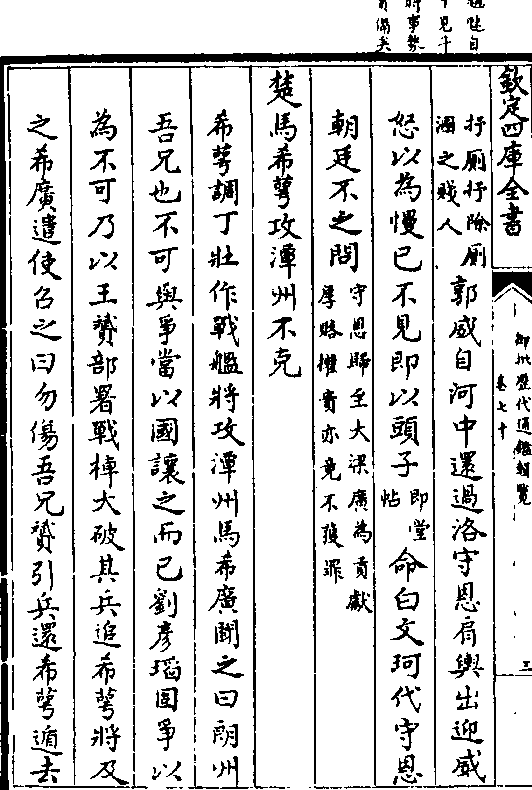 欽定四庫全書
御批歷代通鑑輯覽
卷七十
三
抒厠抒除厠
溷之賤人
郭威自河中還過洛守恩肩輿出迎威
怒以為慢已不見即以頭子
即堂
帖
命白文珂代守恩
朝廷不之問
守恩歸至大梁廣為貢獻
厚賂權貴亦竟不獲罪
楚馬希萼攻潭州不克
希萼調丁壯作戰艦將攻潭州馬希廣聞之曰朗州
吾兄也不可與爭當以國讓之而已劉彥瑫固爭以
為不可乃以王贇部署戰棹大破其兵追希萼將及
之希廣遣使召之曰勿傷吾兄贇引兵還希萼遁去